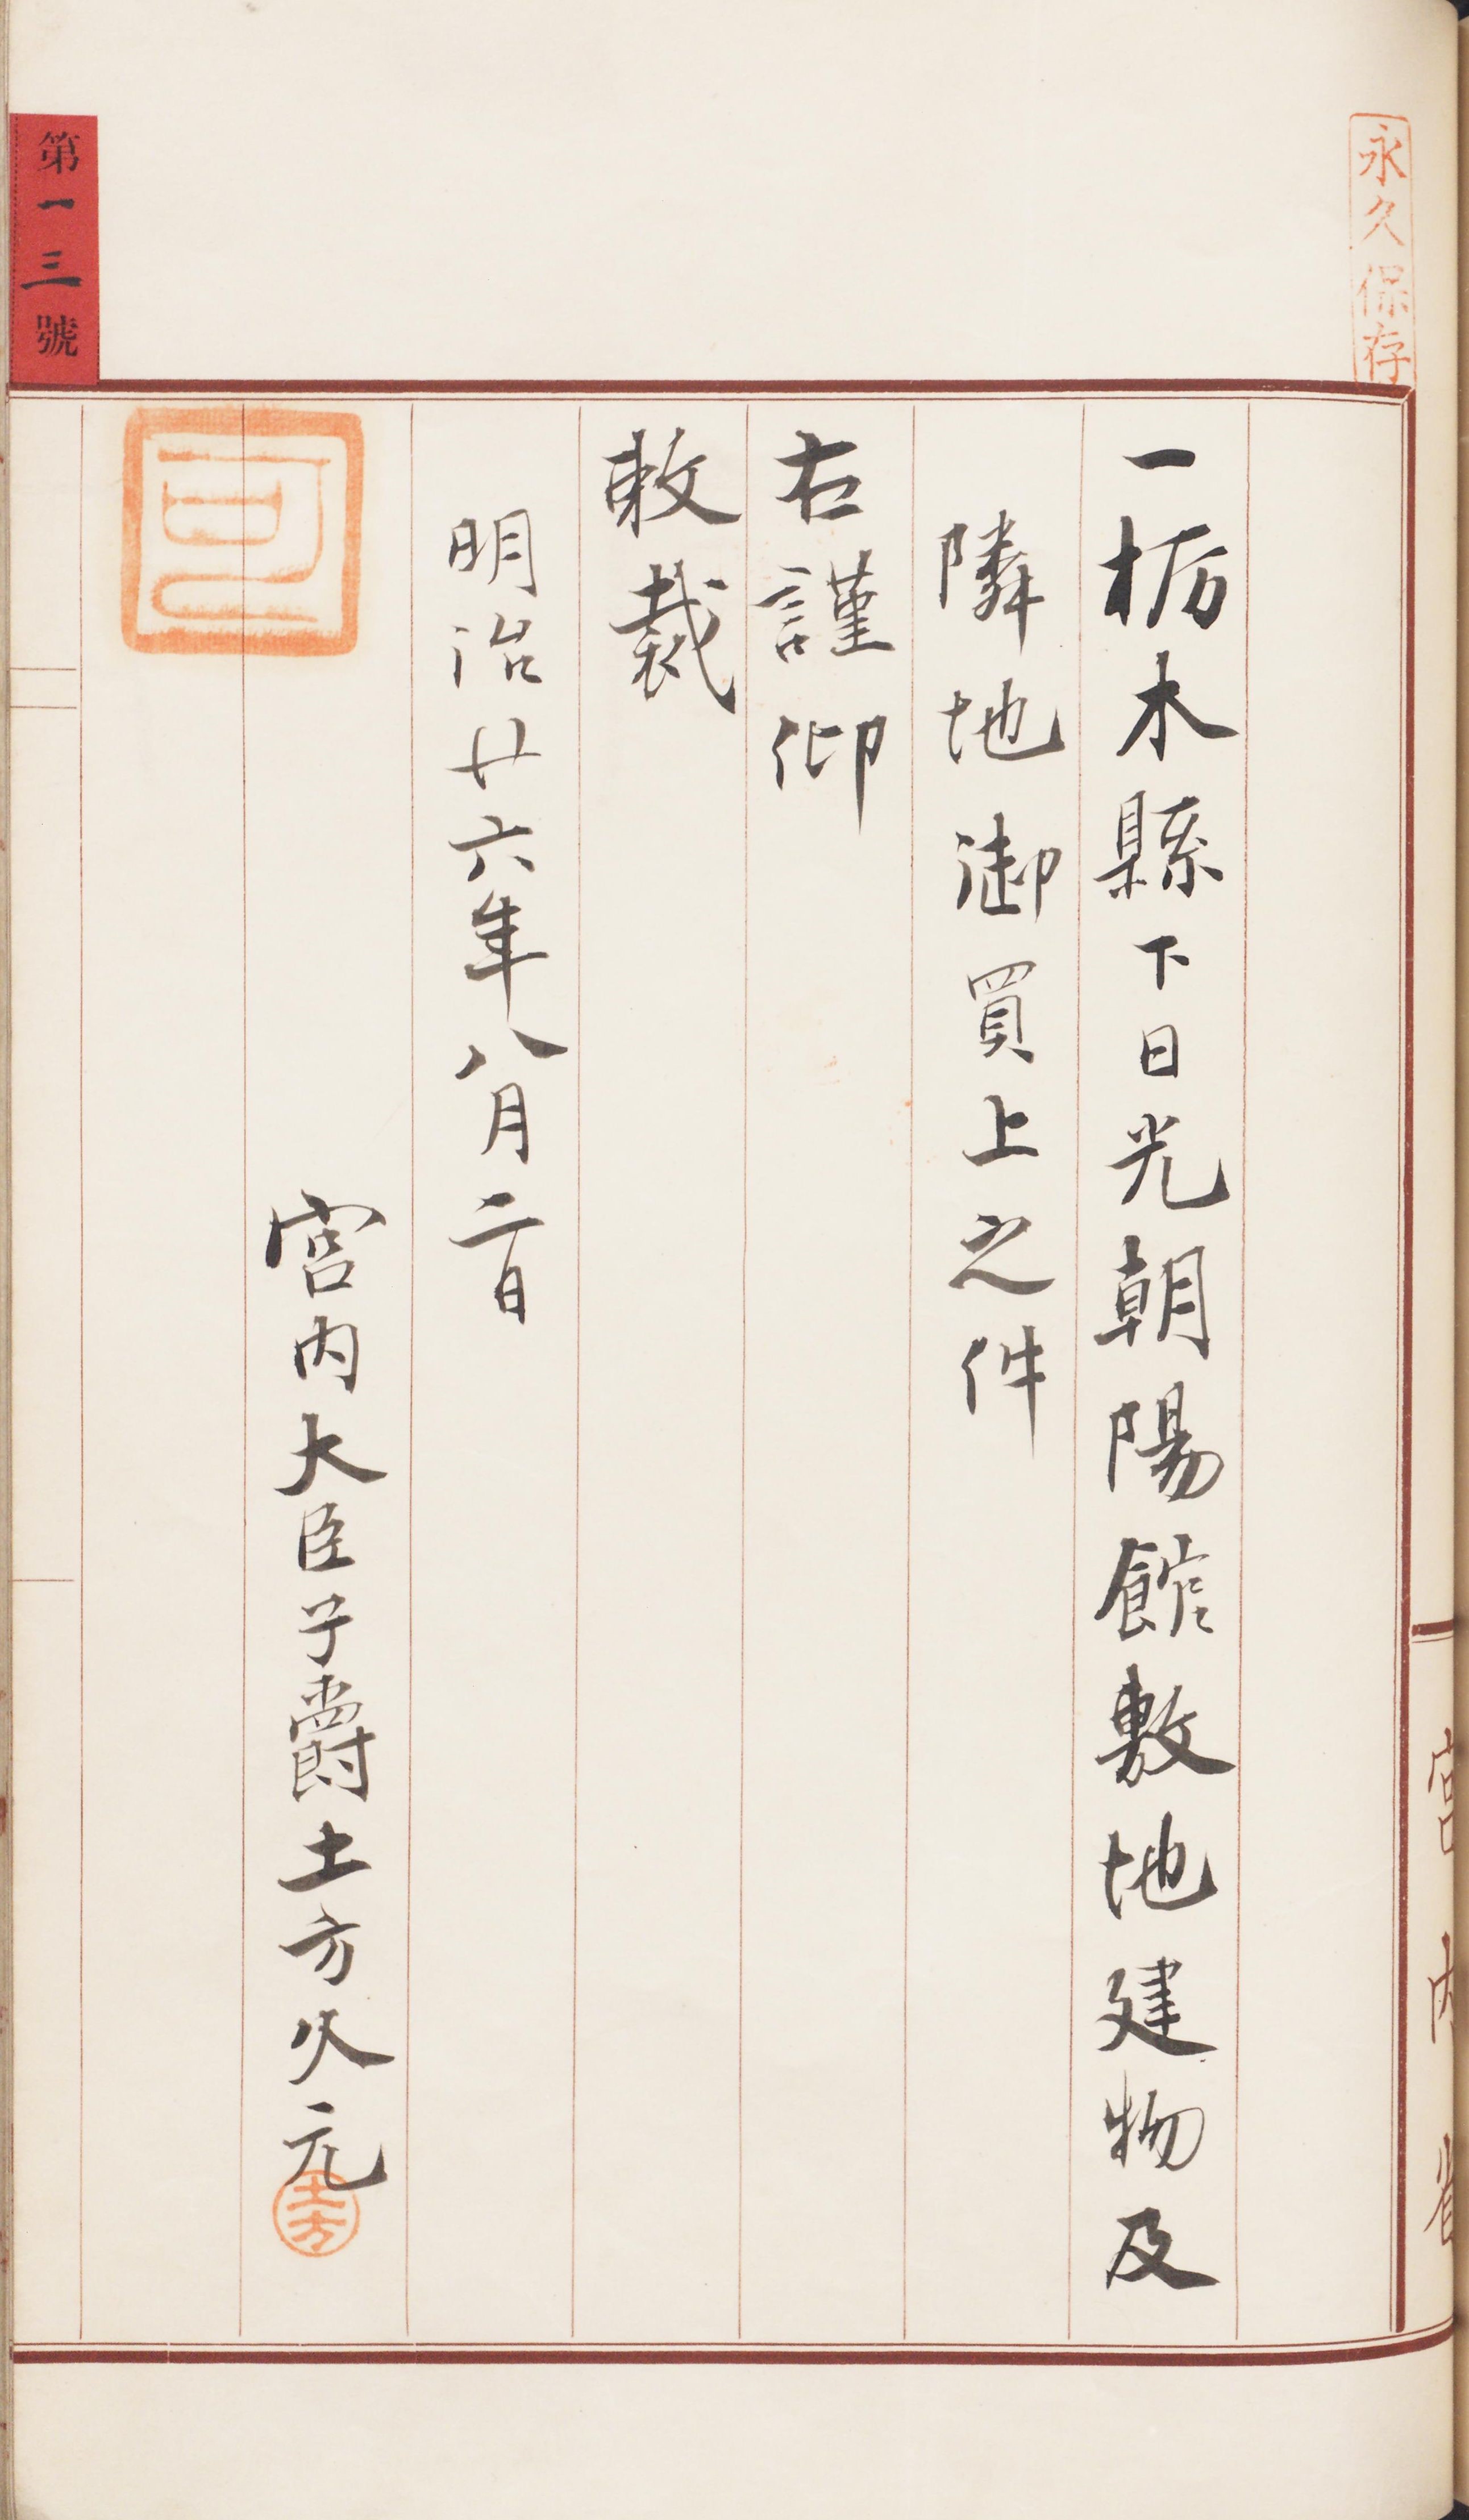 永久保存
一栃木縣下日光朝陽館敷地建物及
隣地御買上之件
右謹仰
敕裁
明治廿六年八月二日
宮内大臣子爵土方久元
土方
可
第一三號
宮内省